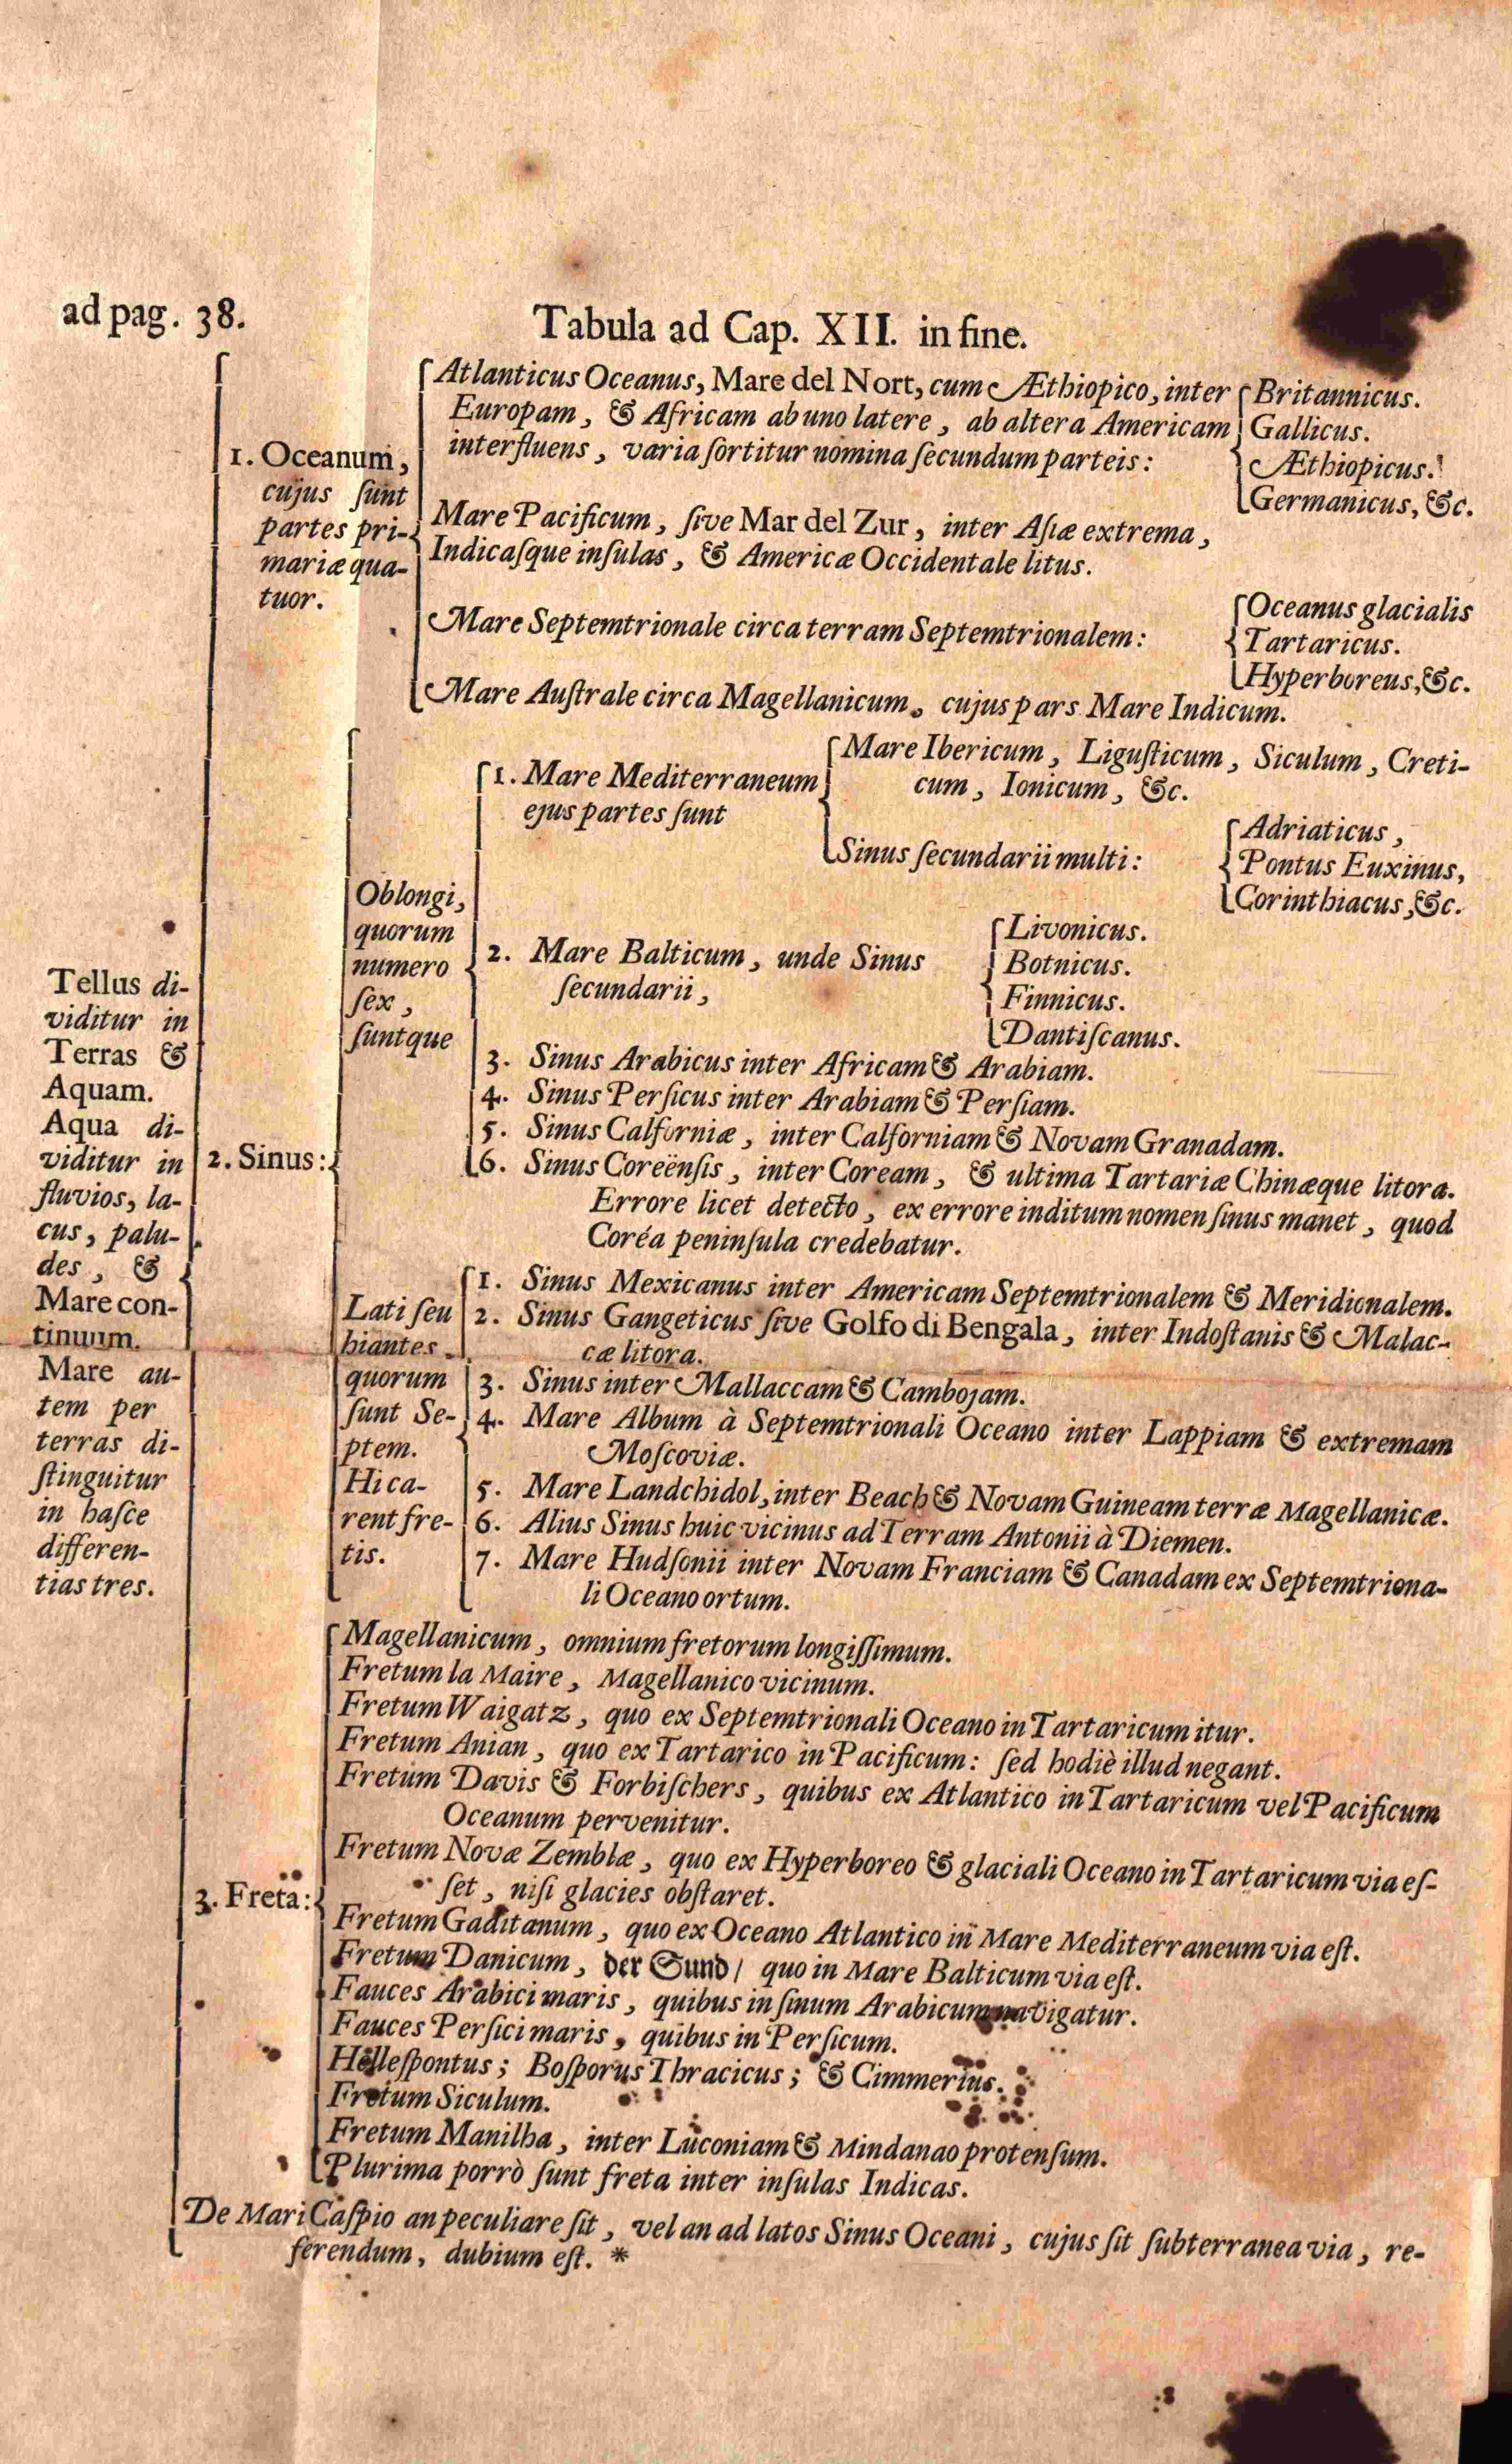 ad pag. 38.
Tabula ad Cap. XII. in fine.
Tellus di-
viditur in
Terras &
Aquam.
Aqua di-
viditur in
fluvios, la-
cus, palu-
des, &
Mare con-
tinuum.
Mare au-
tem per
terras di-
ſtinguitur
in haſce
differen-
tias tres.
1. Oceanum,
cujus ſunt
partes pri-
mariæ qua-
tuor.
Atlanticus Oceanus, Mare del Nort, cum Æthiopico, inter
Europam, & Africam ab uno latere, ab altera Americam
interfluens, varia ſortitur nomina ſecundum parteis:
Britannicus.
Gallicus.
Æthiopicus.
Germanicus, &c.
Mare Pacificum, ſive Mar del Zur, inter Aſiæ extrema,
Indicaſque inſulas, & Americæ Occidentale litus.
Mare Septemtrionale circa terram Septemtrionalem:
Oceanus glacialis
Tartaricus.
Hyperboreus, &c.
Mare Auſtrale circa Magellanicum, cujus pars Mare Indicum.
2. Sinus:
Oblongi,
quorum
numero
ſex,
ſuntque
1. Mare Mediterraneum
ejus partes ſunt
Mare Ibericum, Liguſticum, Siculum, Creti-
cum, Ionicum, &c.
Sinus ſecundarii multi:
Adriaticus,
Pontus Euxinus,
Corinthiacus, &c.
2. Mare Balticum, unde Sinus
ſecundarii,
Livonicus.
Botnicus.
Finnicus.
Dantiſcanus.
3. Sinus Arabicus inter Africam & Arabiam.
4. Sinus Perſicus inter Arabiam & Perſiam.
5. Sinus Calforniæ, inter Calforniam & Novam Granadam.
6. Sinus Coreënſis, inter Coream, & ultima Tartariæ Chinæque litora.
Errore licet detecto, ex errore inditum nomen ſinus manet, quod
Coréa peninſula credebatur.
Lati ſeu
hiantes
quorum
ſunt Se-
ptem.
Hi ca-
rent fre-
tis.
1. Sinus Mexicanus inter Americam Septemtrionalem & Meridionalem.
2. Sinus Gangeticus ſive Golfo di Bengala, inter Indoſtanis & Malac-
cæ litora.
3. Sinus inter Mallaccam & Cambojam.
4. Mare Album à Septemtrionali Oceano inter Lappiam & extremam
Moſcoviæ.
5. Mare Landchidol, inter Beach & Novam Guineam terræ Magellanicæ.
6. Alius Sinus huic vicinus ad Terram Antonii à Diemen.
7. Mare Hudſonii inter Novam Franciam & Canadam ex Septemtriona-
li Oceano ortum.
3. Freta:
Magellanicum, omnium fretorum longiſſimum.
Fretum la Maire, Magellanico vicinum.
Fretum Waigatz, quo ex Septemtrionali Oceano in Tartaricum itur.
Fretum Anian, quo ex Tartarico in Pacificum: ſed hodiè illud negant.
Fretum Davis & Forbiſchers, quibus ex Atlantico in Tartaricum vel Pacificum
Oceanum pervenitur.
Fretum Novæ Zemblæ, quo ex Hyperboreo & glaciali Oceano in Tartaricum via eſ-
ſet, niſi glacies obſtaret.
Fretum Gaditanum, quo ex Oceano Atlantico in Mare Mediterraneum via eſt.
Fretum Danicum, der Sund/ quo in Mare Balticum via eſt.
Fauces Arabici maris, quibus in ſinum Arabicum navigatur.
Fauces Perſici maris, quibus in Perſicum.
Helleſpontus; Boſporus Thracicus; & Cimmerius.
Fretum Siculum.
Fretum Manilha, inter Luconiam & Mindanao protenſum.
Plurima porrò ſunt freta inter inſulas Indicas.
De Mari Caſpio an peculiare ſit, vel an ad latos Sinus Oceani, cujus ſit ſubterranea via, re-
ferendum, dubium eſt. *